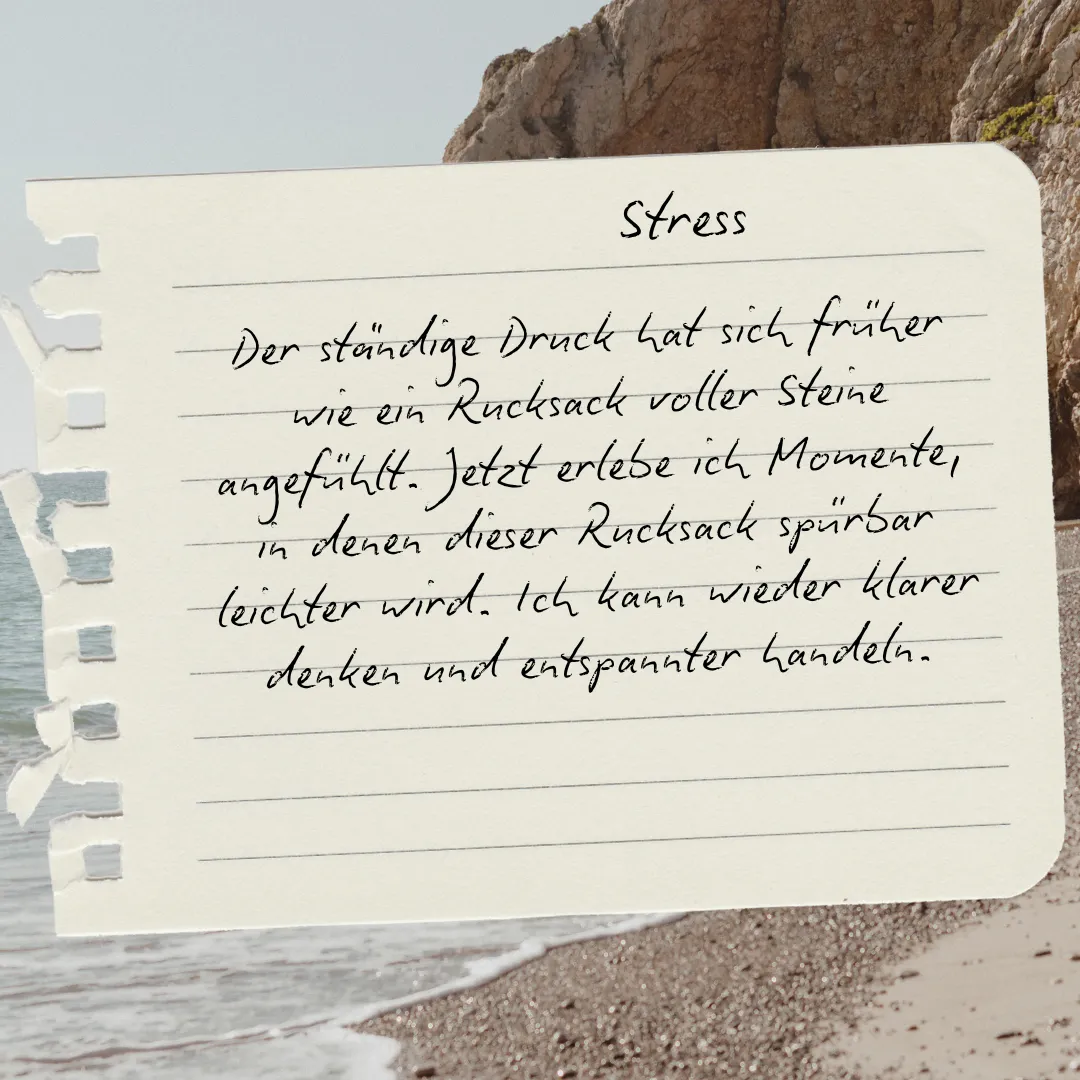 Stress
Der ständige Druck hat sich früher
wie ein Rucksack voller Steine
angefühlt. Jetzt erlebe ich Momente,
in denen dieser Rucksack spürbar
leichter wird. Ich kann wieder klarer
denken und entspannter handeln.